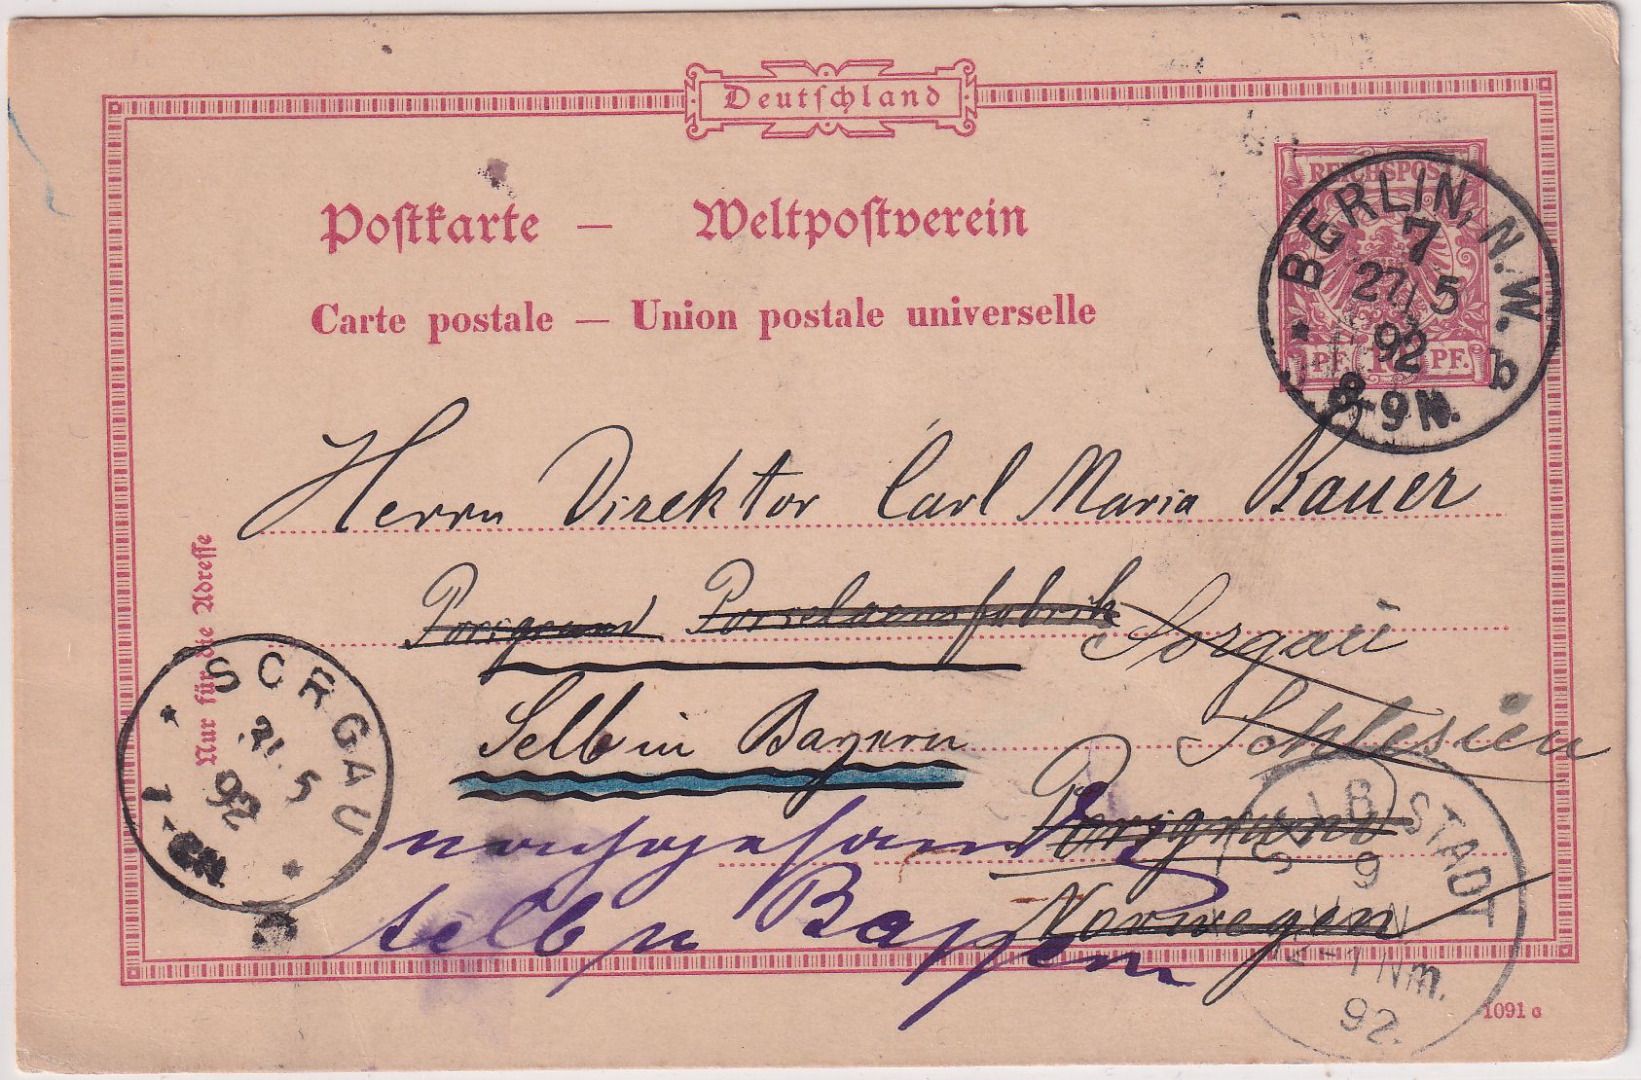 Deutſchland
Poſtkarte — Weltpoſtverein
Carte postale — Union postale universelle
REICHSPOST
PF. 10 PF.
BERLIN, N.W.
7
27 5
92
8-9N.
Herrn Direktor Carl Maria Bauer
Porsgrund Porselaensfabrik Sorgau
Selb in Bayern Schlesien
Porsgrund
nachgesandt
Norwegen
Selb in Bayern
Nur für die Adreſſe
SORGAU
31. 5
92
1-2N.
SELB STADT
9
JUN
12-1 Nm.
92.
1091 c